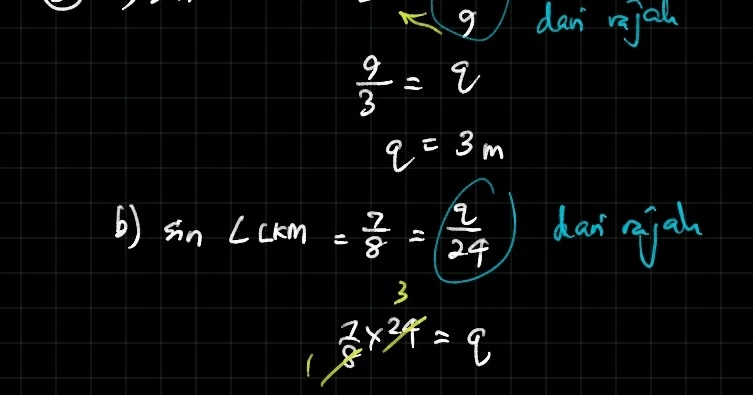 9 dari rajah
9/3 = q
q = 3 m
b) sin ∠LKM = 7/8 = q/24 dari rajah
3
7/8 × 24 = q
1